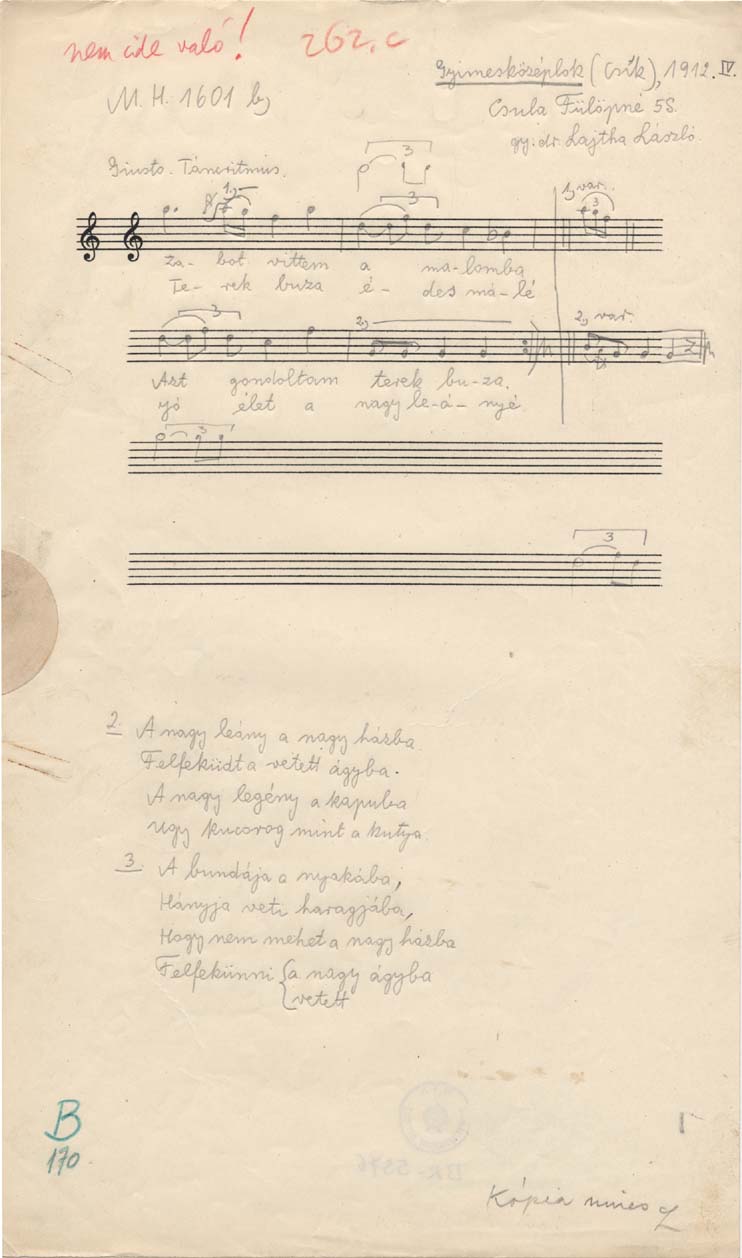 nem ide való! 262.c
Gyimesközéplok (Csík), 1912. IV.
M.H. 1601 b)
Csula Fülöpné 58.
gy: dr. Lajtha László.
Giusto. Táncritmus.
3
1,) 3 1,) var. 3
Za- bot vittem a ma-lomba
Te- rek buza é- des má-lé
3 2,) 2,) var.
Azt gondoltam terek bu-za,
jó élet a nagy le-á-nyé
3
3
2. A nagy leány a nagy házba
Felfeküdt a vetett ágyba.
A nagy legény a kapuba
Ugy kucorog mint a kutya.
3. A bundája a nyakába,
Hányja veti haragjába,
Hogy nem mehet a nagy házba
Felfekünni {a nagy ágyba
vetett
B
170
BR-5576
Kópia nincs